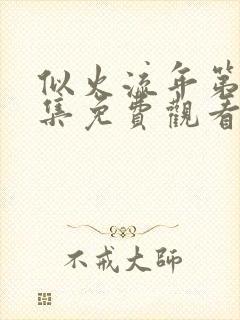 似火流年第
集免費觀看
不戒大師